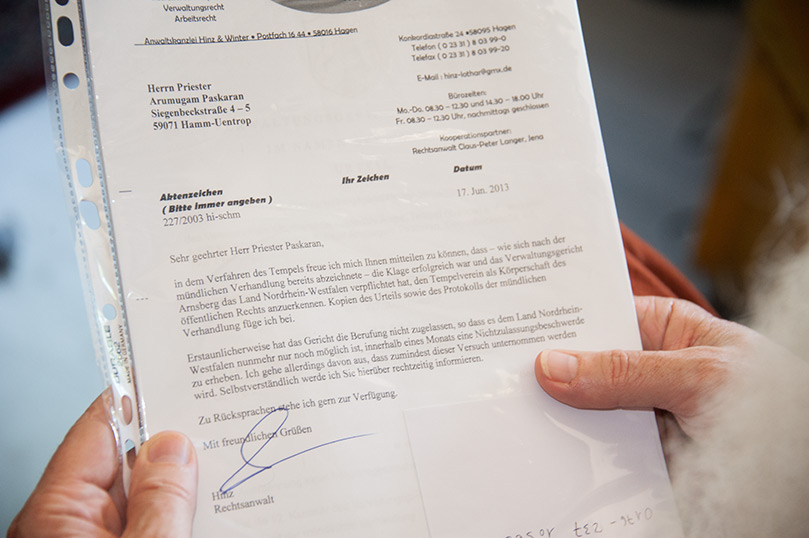 Verwaltungsrecht
Arbeitsrecht
Anwaltskanzlei Hinz & Winter • Postfach 16 44 • 58016 Hagen
Konkordiastraße 24 • 58095 Hagen
Telefon ( 0 23 31 ) 8 03 99-0
Telefax ( 0 23 31 ) 8 03 99-20
E-Mail : hinz-lothar@gmx.de
Bürozeiten:
Mo.-Do. 08.30 – 12.30 und 14.30 – 18.00 Uhr
Fr. 08.30 – 12.30 Uhr, nachmittags geschlossen
Kooperationspartner:
Rechtsanwalt Claus-Peter Langer, Jena
Herrn Priester
Arumugam Paskaran
Siegenbeckstraße 4 – 5
59071 Hamm-Uentrop
Aktenzeichen
( Bitte immer angeben )
227/2003 hi-schm
Ihr Zeichen
Datum
17. Jun. 2013
Sehr geehrter Herr Priester Paskaran,
in dem Verfahren des Tempels freue ich mich Ihnen mitteilen zu können, dass – wie sich nach der
mündlichen Verhandlung bereits abzeichnete – die Klage erfolgreich war und das Verwaltungsgericht
Arnsberg das Land Nordrhein-Westfalen verpflichtet hat, den Tempelverein als Körperschaft des
öffentlichen Rechts anzuerkennen. Kopien des Urteils sowie des Protokolls der mündlichen
Verhandlung füge ich bei.
Erstaunlicherweise hat das Gericht die Berufung nicht zugelassen, so dass es dem Land Nordrhein-
Westfalen nunmehr nur noch möglich ist, innerhalb eines Monats eine Nichtzulassungsbeschwerde
zu erheben. Ich gehe allerdings davon aus, dass zumindest dieser Versuch unternommen werden
wird. Selbstverständlich werde ich Sie hierüber rechtzeitig informieren.
Zu Rücksprachen stehe ich gern zur Verfügung.
Mit freundlichen Grüßen
Hinz
Rechtsanwalt